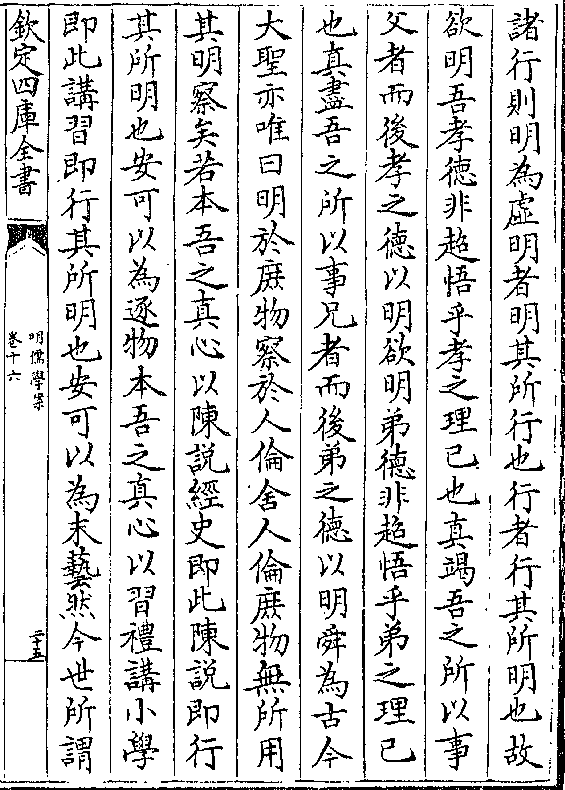 諸行則明為虛明者明其所行也行者行其所明也故
欲明吾孝德非超悟乎孝之理已也真竭吾之所以事
父者而後孝之德以明欲明弟德非超悟乎弟之理已
也真盡吾之所以事兄者而後弟之德以明舜為古今
大聖亦唯曰明於庶物察於人倫舍人倫庶物無所用
其明察矣若本吾之真心以陳說經史即此陳說即行
其所明也安可以為逐物本吾之真心以習禮講小學
即此講習即行其所明也安可以為末藝然今世所謂
欽定四庫全書
明儒學案
卷十六
二十五